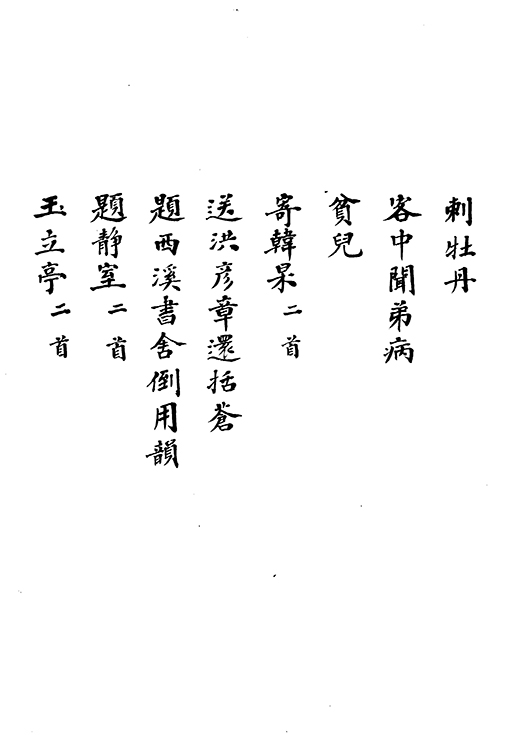 刺牡丹
客中聞弟病
貧兒
寄韓杲二首
送洪彦章還括蒼
題西溪書舍倒用韻
題静室二首
玉立亭二首